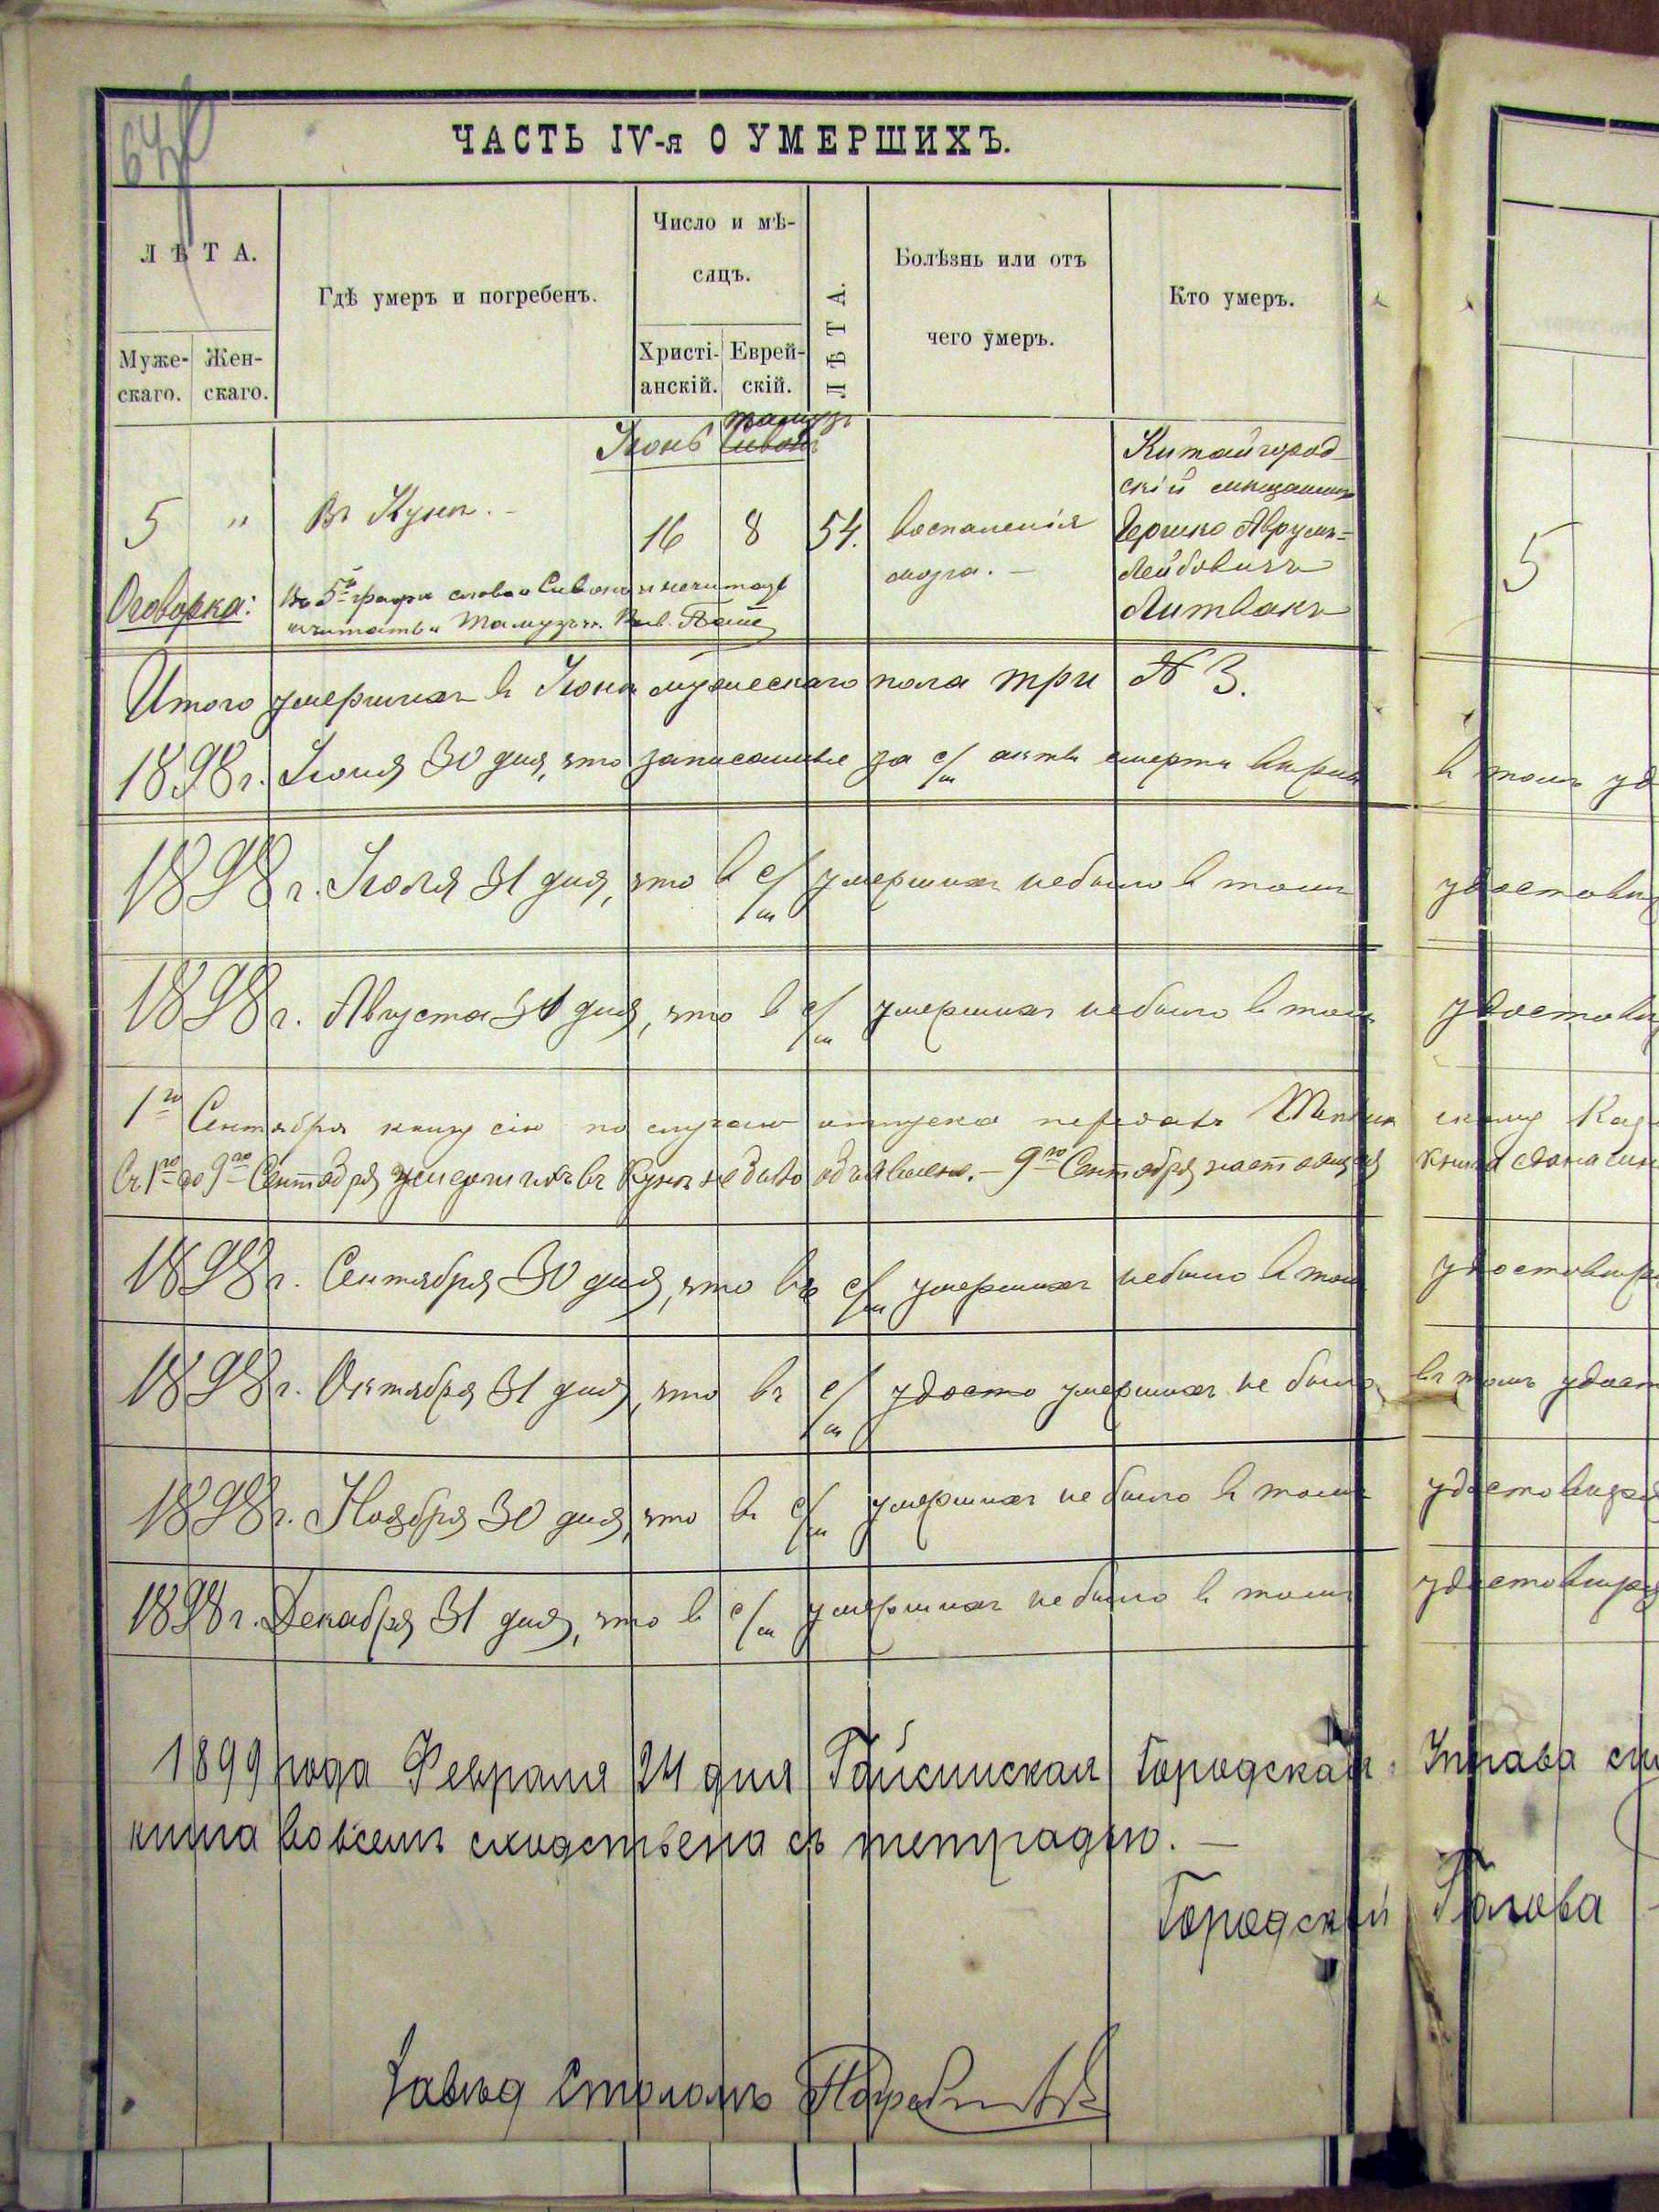 ЧАСТЬ IV-я О УМЕРШИХЪ.
ЛѢТА.
Муже-
скаго.
Жен-
скаго.
Гдѣ умеръ и погребенъ.
Число и мѣ-
сяцъ.
Христі-
анскій.
Еврей-
скій.
ЛѢТА.
Болѣзнь или отъ
чего умеръ.
Кто умеръ.
Тамузъ
Іюнь Сиванъ
5 " Въ Кунѣ. - 16 8 54. воспаленія
мозга. -
Китайгород-
скій мѣщанинъ
Гершко Аврумъ-
Лейбовичъ
Литвакъ
5
Оговорка: Въ 5й графѣ слово „Сиванъ" не читать
а читать „Тамузъ".
Итого умершихъ въ Іюнѣ мужескаго пола три № 3.
1898 г. Іюня 30 дня, что записанные за с/м акты смерти вѣрны въ томъ уд
1898 г. Іюля 31 дня, что въ с/м умершихъ небыло въ томъ удостовѣ
1898 г. Августа 31 дня, что въ с/м умершихъ небыло въ томъ удостовѣ
1го Сентября книгу сію по случаю отпуска передать
съ 1го до 9го Сентября умершихъ въ Кунѣ не было объявлено. - 9го Сентября настоящая книга сдана
1898 г. Сентября 30 дня, что въ с/м умершихъ небыло въ томъ удостовѣр
1898 г. Октября 31 дня, что въ с/м удосто умершихъ не было въ томъ удост
1898 г. Ноября 30 дня, что въ с/м умершихъ не было въ томъ удостовѣря
1898 г. Декабря 31 дня, что въ с/м умершихъ небыло въ томъ удостовѣря
1899 года Февраля 24 дня Гайсинская Городская Управа
книга во всемъ сходственна съ тетрадью. -
Городской Голова
Завѣд Столомъ